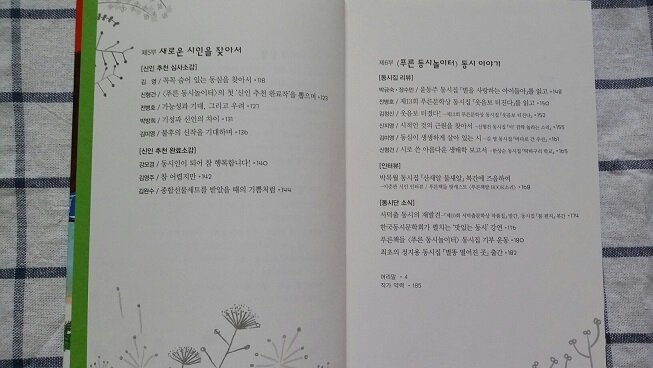 제5부 새로운 시인을 찾아서
[신인 추천 심사소감]
김 영 / 꼭꼭 숨어 있는 동심을 찾아서 • 118
신형건 / 〈푸른 동시놀이터〉의 첫 '신인 추천 완료작'을 뽑으며 • 123
전병호 / 가능성과 기대, 그리고 우려 • 127
박방희 / 기성과 신인의 차이 • 131
김미영 / 불후의 신작을 기대하며 • 136
[신인 추천 완료소감]
강모경 / 동시인이 되어 참 행복합니다! • 140
김영주 / 참 어렵지만 • 142
김완수 / 종합선물세트를 받았을 때의 기쁨처럼 • 144
제6부 〈푸른 동시놀이터〉 동시 이야기
[동시집 리뷰]
박금숙 / 윤동주 동시집 『별을 사랑하는 아이들아』를 읽고 • 148
전병호 / 제13회 푸른문학상 동시집 『웃음보 터진다』를 읽고 • 150
김정신 / 웃음보 터졌다! —제13회 푸른문학상 동시집 『웃음보 터진다』 • 152
신지영 / 시적인 것의 근원을 찾아서 • 155
김미영 / 동심이 생생하게 살아 있는 시 • 161
신형건 / 시로 쓴 아름다운 생태학 보고서 • 165
[인터뷰]
박목월 동시집 『산새알 물새알』 복간에 즈음하여
[동시단 소식]
서덕출 동시의 재발견 • 174
한국동시문학회가 펼치는 '맛있는 동시' 강연 • 176
푸른책들 〈푸른 동시놀이터〉 동시집 기부 운동 • 180
최초의 정지용 동시집 『별똥 떨어진 곳』 출간 • 182
머리말 • 4
작가 약력 • 185